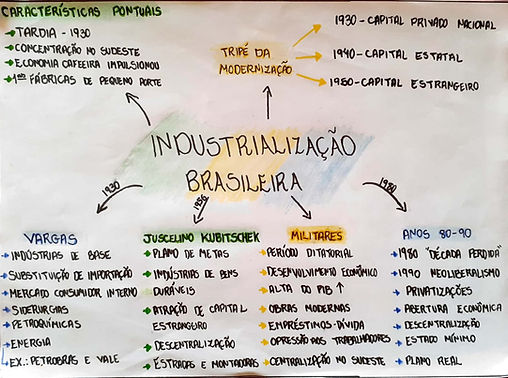 CARACTERÍSTICAS PONTUAIS
TARDIA - 1930
CONCENTRAÇÃO NO SUDESTE
ECONOMIA CAFEEIRA IMPULSIONOU
1ªs FÁBRICAS DE PEQUENO PORTE
TRIPÉ DA
MODERNIZAÇÃO
1930 - CAPITAL PRIVADO NACIONAL
1940 - CAPITAL ESTATAL
1950 - CAPITAL ESTRANGEIRO
INDUSTRIALIZAÇÃO
BRASILEIRA
1930
1956
1980
VARGAS
INDÚSTRIAS DE BASE
SUBSTITUIÇÃO DE IMPORTAÇÃO
MERCADO CONSUMIDOR INTERNO
SIDERURGIAS
PETROQUÍMICAS
ENERGIA
EX.: PETROBRAS E VALE
JUSCELINO KUBITSCHEK
PLANO DE METAS
INDÚSTRIAS DE BENS
DURÁVEIS
ATRAÇÃO DE CAPITAL
ESTRANGURO
DESCENTRALIZAÇÃO
ESTRADAS E MONTADORAS
MILITARES
PERÍODO DITATORIAL
DESENVOLVIMENTO ECONÔMICO
ALTA DO PIB ↑
OBRAS MODERNAS
EMPRÉSTIMOS - DÍVIDA
OPRESSÃO AOS TRABALHADORES
CENTRALIZAÇÃO NO SUDESTE
ANOS 80-90
1980 "DÉCADA PERDIDA"
1990 NEOLIBERALISMO
PRIVATIZAÇÕES
ABERTURA ECONÔMICA
DESCENTRALIZAÇÃO
ESTADO MÍNIMO
PLANO REAL